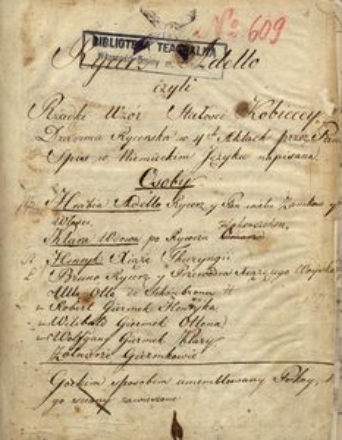 No: 609
BIBLIOTEKA TEATRALNA
Rycerz Adello
czyli
Rzadki Wzór Stałości Kobiecey
Drama Rycerska w 4ch Aktach przez Pan
Spies w Niemieckim Języku napisana
Osoby
Hrabia Adello Rycerz y Pan wielu Zamków y
Włości.
Klara Wdowa po Rycerzu
Henryk Xiąże Thuryngii
Bruno Rycerz y Dowodca Xiążęcego Woyska
Otto de Schönborn
Robert Giermek Henryka
Wilibald Giermek Ottona
Wolfgang Giermek Klary
Żołnierze Giermkowie
Gockim sposobem umeblowany Pokoy,
go zawieszone